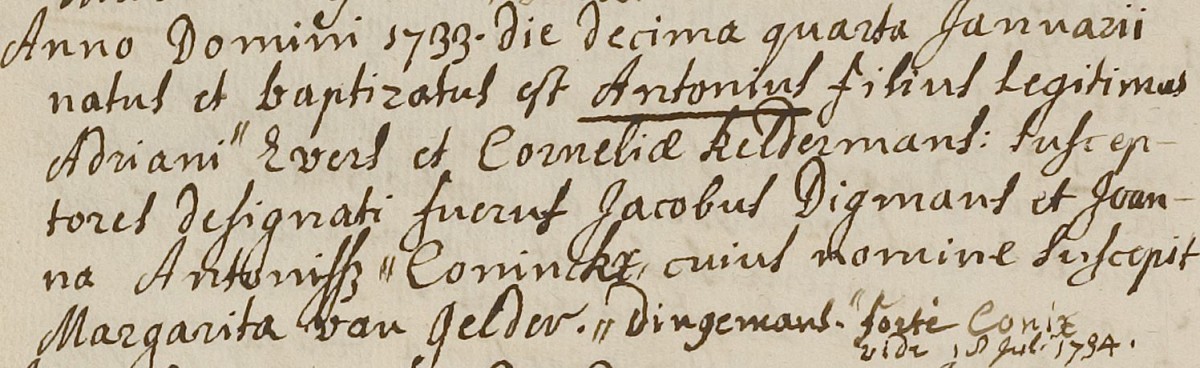 Anno Domini 1733. die decima quarta Januarii
natus et baptizatus est Antonius filius legitimus
Adriani " Evers et Corneliæ keldermans: suscep-
tores designati fuerut Jacobus Digmans et Joan-
na Antonissz " Coninckx, cuius nomine suscepit
Margarita van gelder. " Dingemans. " fortè Conix
vide 18 Juli 1734.